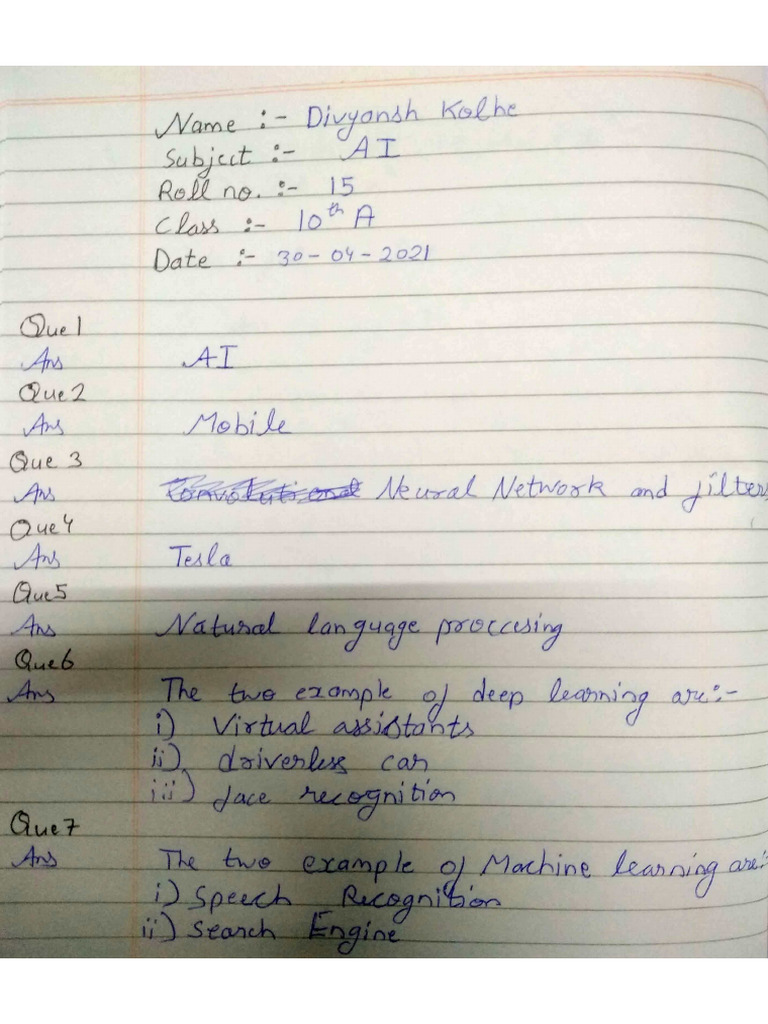 Name :- Divyansh Kolhe
Subject :- AI
Roll no. :- 15
Class :- 10th A
Date :- 30-04-2021
Que1
Ans AI
Que2
Ans Mobile
Que 3
Ans Convolutional Neural Network and filters
Que4
Ans Tesla
Que5
Ans Natural language proccesing
Que6
Ans The two example of deep learning are:-
i) Virtual assistants
ii) driverless car
iii) face recognition
Que7
Ans The two example of Machine learning are:-
i) Speech Recognition
ii) Search Engine